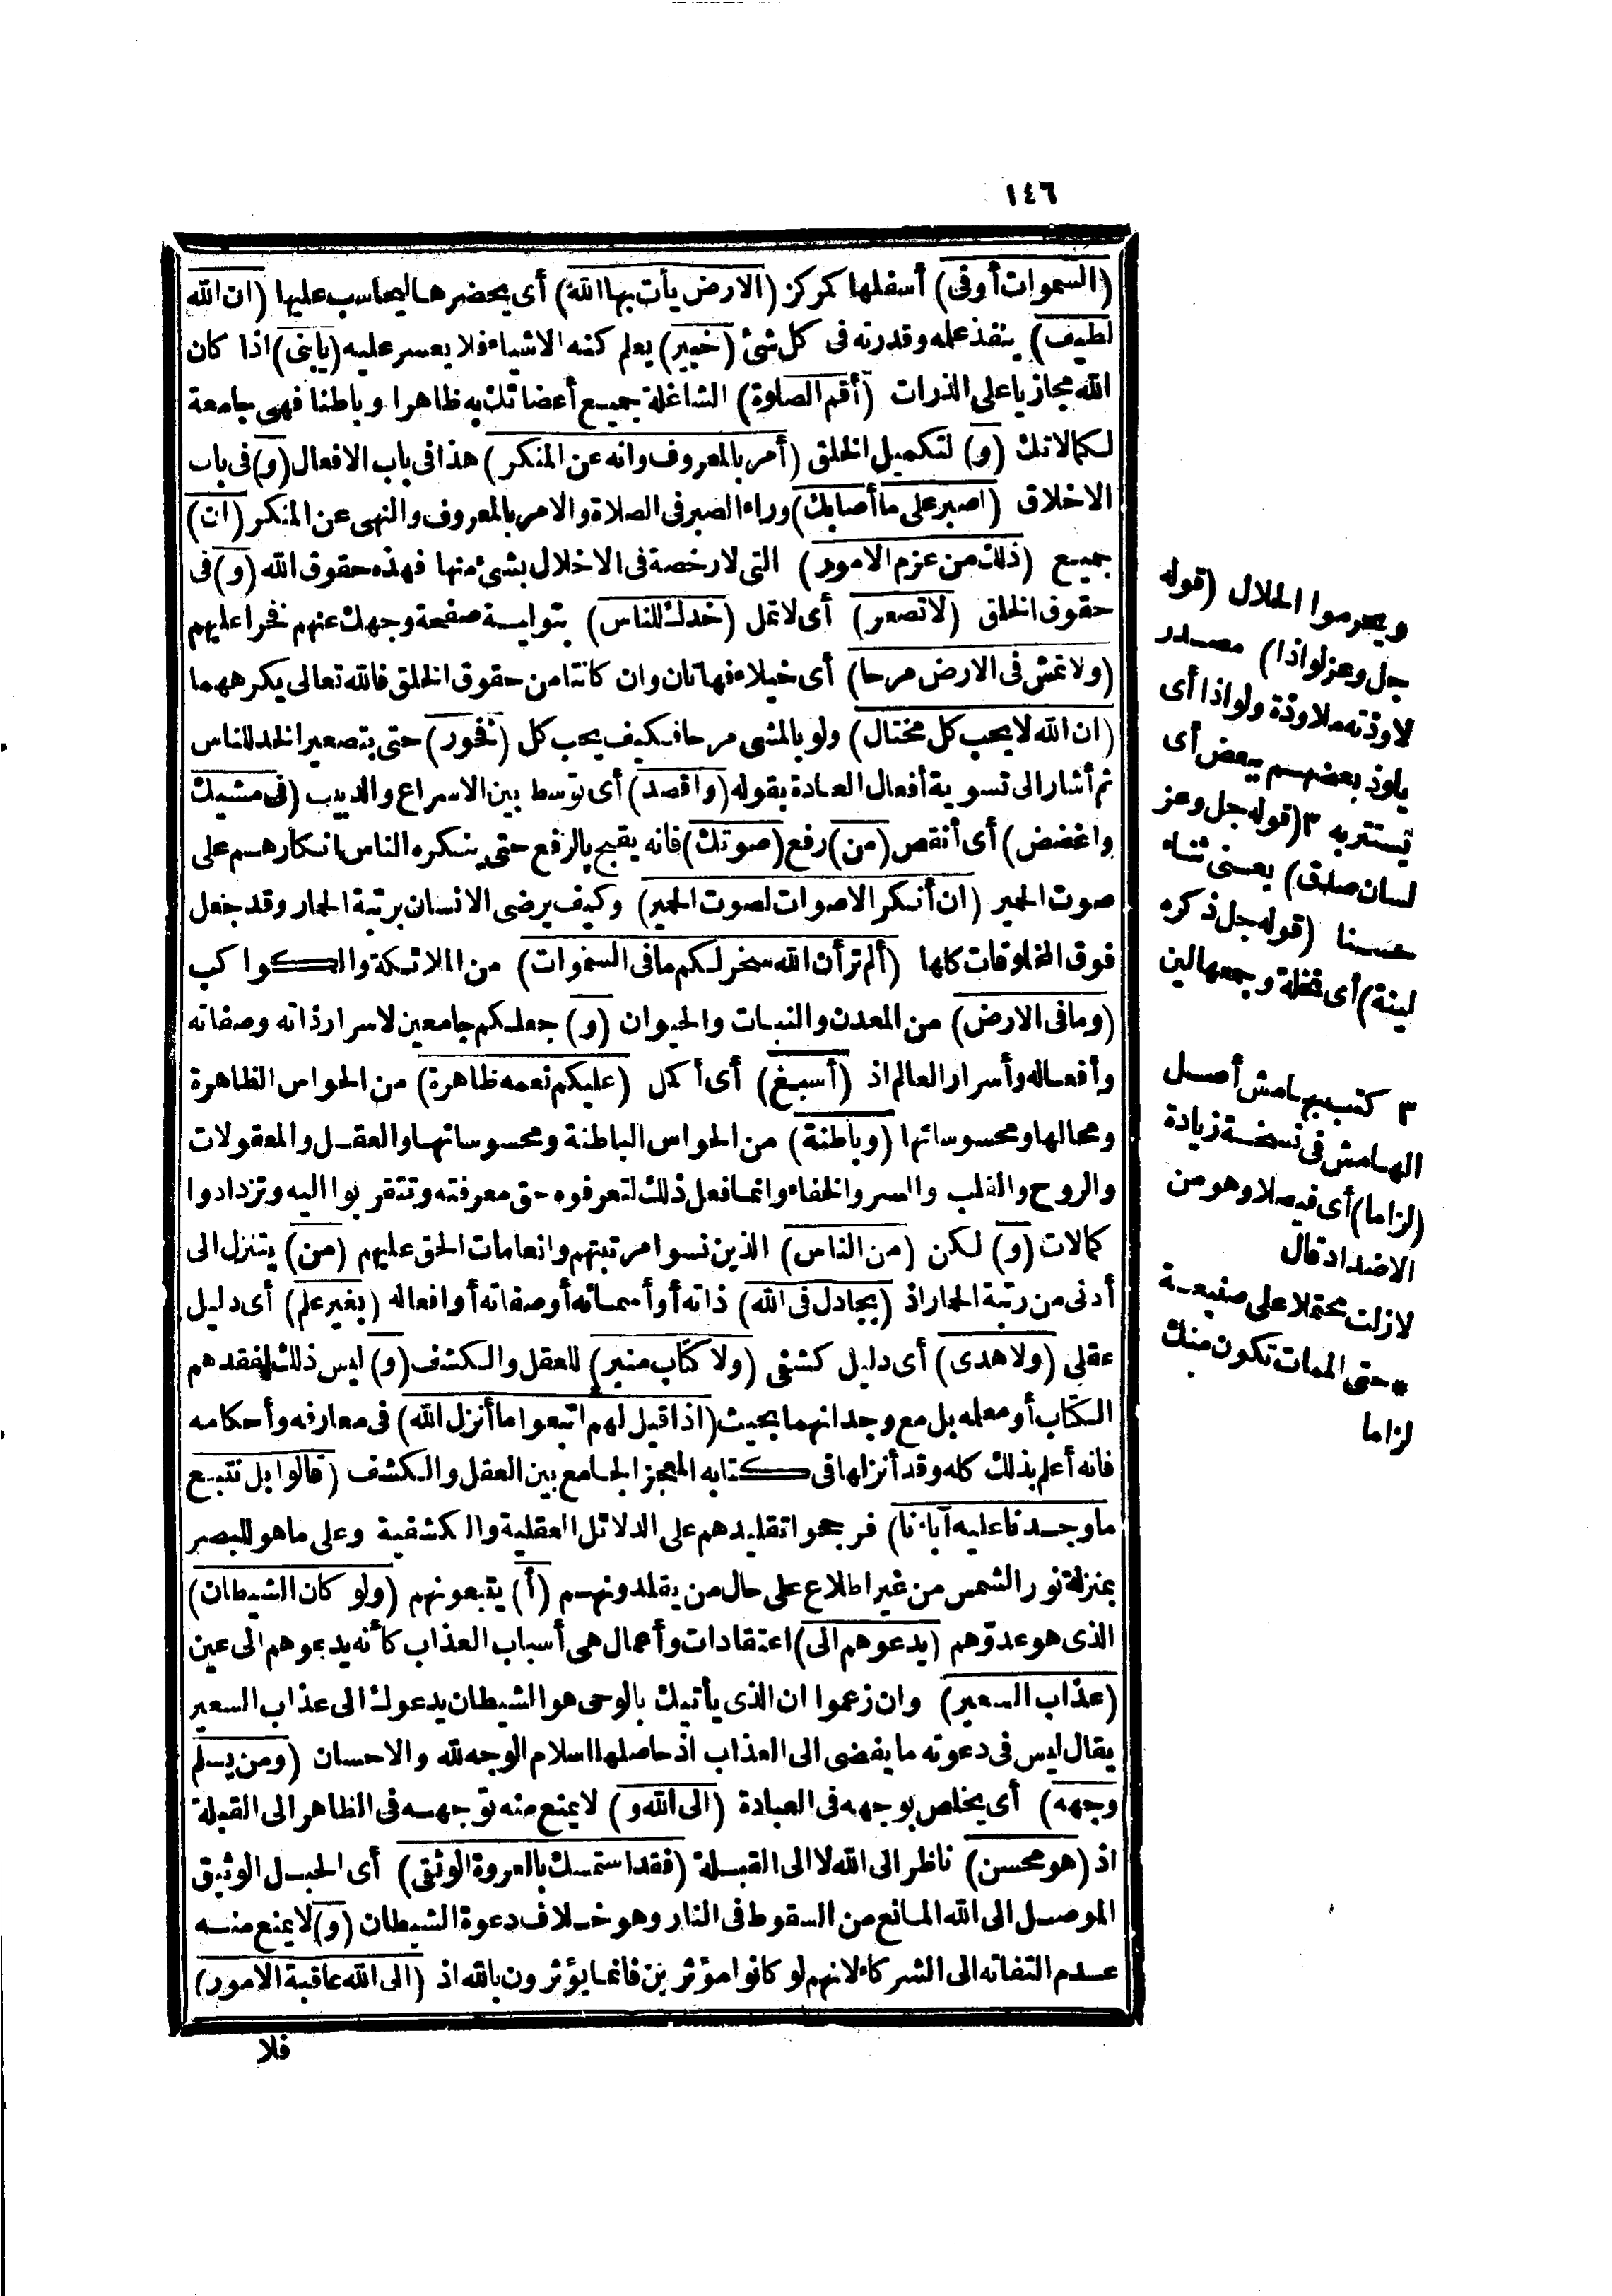 ١٤٦
(السموات أوفى) أسفلها كمركز (الارض يأت بها الله) أى يحضرها ليحاسب عليها (ان الله
لطيف) ينفذ علمه وقدرته فى كل شئ (خبير) يعلم كنه الاشياء فلا يعسر عليه (يابنى) اذا كان
الله مجازيا على الذرات (أقم الصلوة) الشاغلة جميع أعضائك به ظاهرا وباطنا فهى جامعة
لكمالاتك (و) لتكميل الخلق (أمر بالمعروف وانه عن المنكر) هذا فى باب الافعال (و) فى باب
الاخلاق (اصبر على ما أصابك) وراء الصبر فى الصلاة والامر بالمعروف والنهى عن المنكر (ان)
جميع (ذلك من عزم الامور) التى لا رخصة فى الاخلال بشئ منها فهذه حقوق الله (و) فى
حقوق الخلق (لا تصعر) أى لا تمل (خدك للناس) بتولية صفحة وجهك عنهم فخرا عليهم
(ولا تمش فى الارض مرحا) أى خيلاء فهاتان وان كانتا من حقوق الخلق فالله تعالى يكرههما
(ان الله لا يحب كل مختال) ولو بالمشى مرحا فكيف يحب كل (فخور) حتى بتصعير الخد للناس
ثم أشار الى تسوية أفعال العادة بقوله (واقصد) أى توسط بين الاسراع والدبيب (فى مشيك
واغضض) أى أنقص (من) رفع (صوتك) فانه يقبح بالرفع حتى ينكره الناس انكارهم على
صوت الحمير (ان أنكر الاصوات لصوت الحمير) وكيف يرضى الانسان برتبة الحمار وقد جعل
فوق المخلوقات كلها (ألم تر أن الله سخر لكم ما فى السموات) من الملائكة والكواكب
(وما فى الارض) من المعدن والنبات والحيوان (و) جعلكم جامعين لاسرار ذاته وصفاته
وأفعاله وأسرار العالم اذ (أسبغ) أى أكمل (عليكم نعمه ظاهرة) من الحواس الظاهرة
ومحالها ومحسوساتها (وباطنة) من الحواس الباطنة ومحسوساتها والعقل والمعقولات
والروح والقلب والسر والخفاء وانما فعل ذلك لتعرفوه حق معرفته وتتقربوا اليه وتزدادوا
كمالات (و) لكن (من الناس) الذين نسوا مرتبتهم وانعامات الحق عليهم (من) يتنزل الى
أدنى من رتبة الحمار اذ (يجادل فى الله) ذاته أو أسمائه أو صفاته أو افعاله (بغير علم) أى دليل
عقلى (ولا هدى) أى دليل كشفى (ولا كتاب منير) للعقل والكشف (و) ليس ذلك لفقدهم
الكتاب أو معلمه بل مع وجدانهما بحيث (اذا قيل لهم اتبعوا ما أنزل الله) فى معارفه وأحكامه
فانه أعلم بذلك كله وقد أنزلها فى كتابه المعجز الجامع بين العقل والكشف (قالوا بل نتبع
ما وجدنا عليه آباءنا) فرجحوا تقليدهم على الدلائل العقلية والكشفية وعلى ما هو للبصر
بمنزلة نور الشمس من غير اطلاع على حال من يقلدونهم (أ) يتبعونهم (ولو كان الشيطان)
الذى هو عدوّهم (يدعوهم الى) اعتقادات وأعمال هى أسباب العذاب كأنه يدعوهم الى عين
(عذاب السعير) وان زعموا ان الذى يأتيك بالوحى هو الشيطان يدعوك الى عذاب السعير
يقال ليس فى دعوته ما يفضى الى العذاب اذ حاصلها اسلام الوجه لله والاحسان (ومن يسلم
وجهه) أى يخلص بوجهه فى العبادة (الى الله و) لا يمنع منه توجهه فى الظاهر الى القبلة
اذ (هو محسن) ناظر الى الله لا الى القبلة (فقد استمسك بالعروة الوثقى) أى الحبل الوثيق
الموصل الى الله المانع من السقوط فى النار وهو خلاف دعوة الشيطان (و) لا يمنع منه
عدم التفاته الى الشركاء لانهم لو كانوا مؤثرين فانما يؤثرون بالله اذ (الى الله عاقبة الامور)
فلا
ويحرموا الحلال (قوله
جل وعز لواذا) مصدر
لاوذته ملاوذة ولواذا أى
يلوذ بعضهم ببعض أى
يستتر به ٣ (قوله جل وعز
لسان صدق) يعنى ثناء
حسنا (قوله جل ذكره
لينة) أى نخلة وجمعها لين
٣ كتب بهامش أصل
الهامش فى نسخة زيادة
(لزاما) أى فيصلا وهو من
الاضداد قال
لازلت محتملا على ضغينة
* حتى الممات تكون منك
لزاما